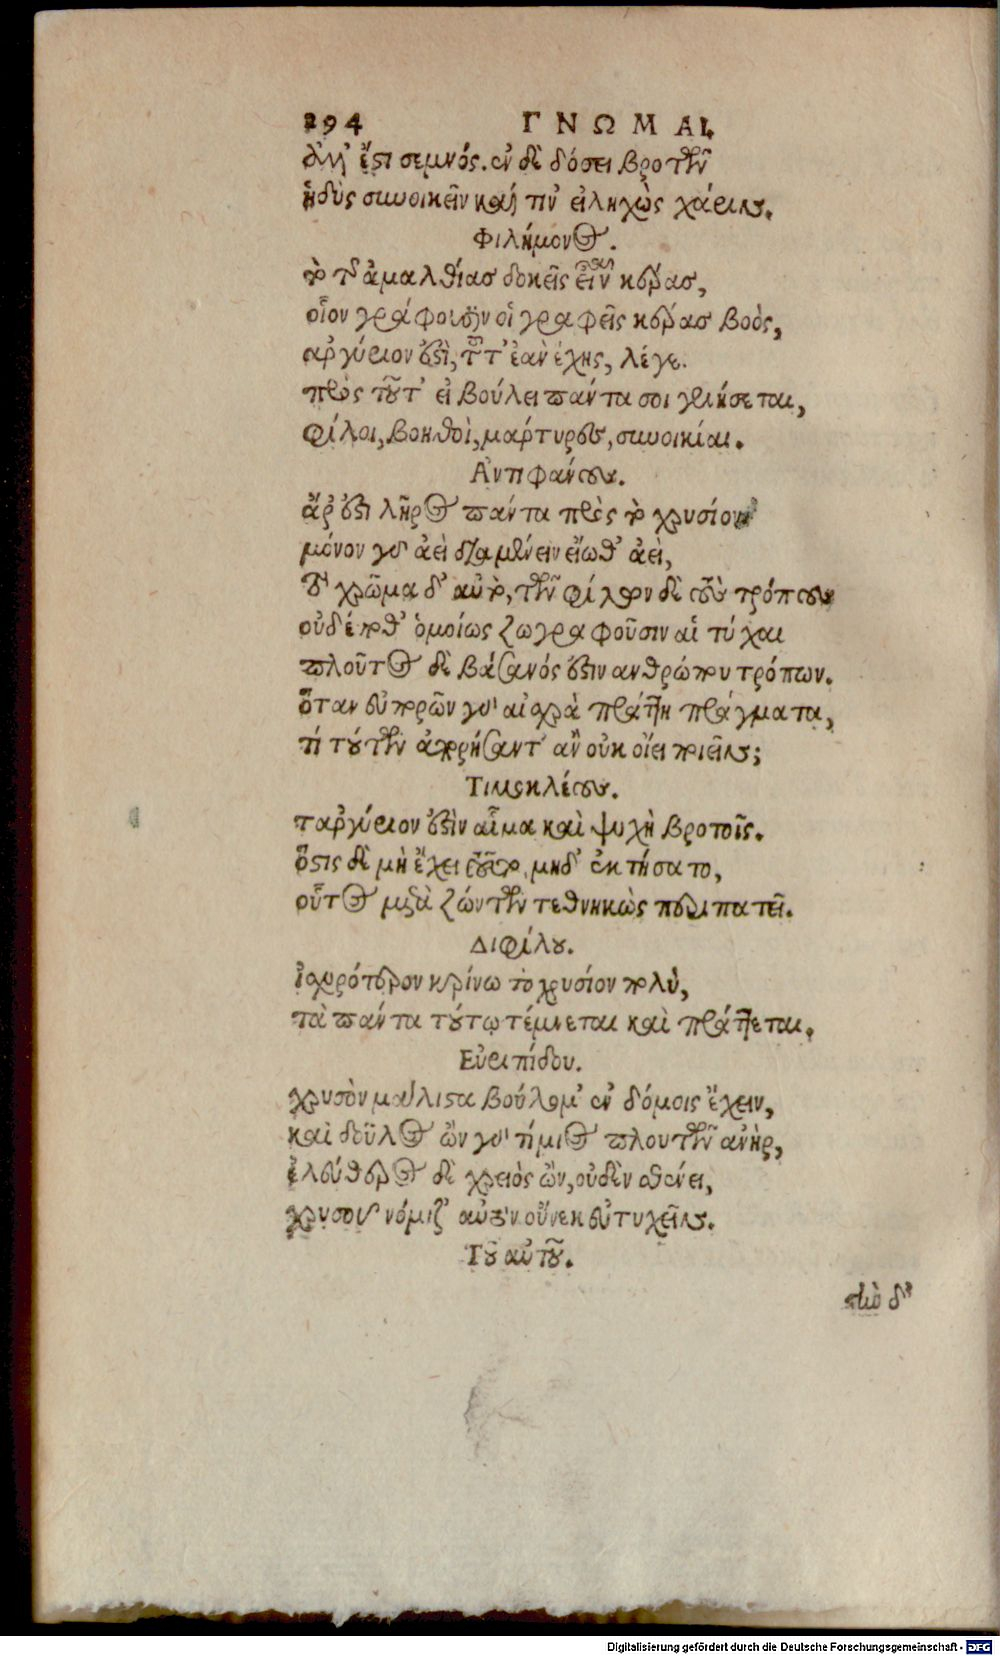 294 ΓΝΩΜΑΙ.
ἔστι σεμνός. ἐν δὲ δόσει βροτῶν
ἡδὺς συνοικεῖν καί τιν' εἰληχὼς χάριν.
Φιλήμονος.
τὸ τῆς ἀμαλθίας δοκεῖς εἶναι κέρας,
οἷον γράφουσιν οἱ γραφεῖς κέρας βοὸς,
ἀργύριον ἐστὶ, τοῦτ' ἐὰν ἔχης, λέγε.
πρὸς τοῦτ' εἰ βούλει πάντα σοι γενήσεται,
φίλοι, βοηθοὶ, μάρτυρες, συνοικίαι.
Αντιφάνους.
ἄρ' ἐστὶ λῆρος πάντα πρὸς τὸ χρυσίον
μόνον γὰρ ἀεὶ διαμένειν εἴωθ' ἀεὶ,
τὸ χρῶμα δ' αὐτὸ, τῶν φίλων δὲ τοὺς τρόπους
οὐδέποθ' ὁμοίως ζωγραφοῦσιν αἱ τύχαι
πλοῦτος δὲ βάσανός ἐστιν ανθρώπου τρόπων.
ὅταν εὐπορῶν γὰρ αἰσχρὰ πράττη πράγματα,
τί τούτων ἀπορήσαντ' ἂν οὐκ οἴει ποιεῖν;
Τιμοκλέους.
ταργύριον ἐστὶν αἷμα καὶ ψυχὴ βροτοῖς.
ὅστις δὲ μὴ ἔχει τοῦτο, μηδ' ἐκτήσατο,
οὗτος μετὰ ζώντων τεθνηκὼς περιπατεῖ.
Διφίλου.
ἰσχυρότερον κρίνω τὸ χρυσίον πολύ,
τὰ πάντα τούτῳ τέμνεται καὶ πράττεται.
Εὐριπίδου.
χρυσὸν μάλιστα βούλομ' ἐν δόμοις ἔχειν,
καὶ δοῦλος ὢν γὰρ τίμιος πλουτῶν ἀνὴρ,
ἐλεύθερος δὲ χρεῖος ὢν, οὐδὲν σθένει,
χρυσοῦ νόμιζ' αὑτὸν οὕνεκ εὐτυχεῖν.
Τοῦ αὐτοῦ.
τὼ δ'
Digitalisierung gefördert durch die Deutsche Forschungsgemeinschaft - DFG